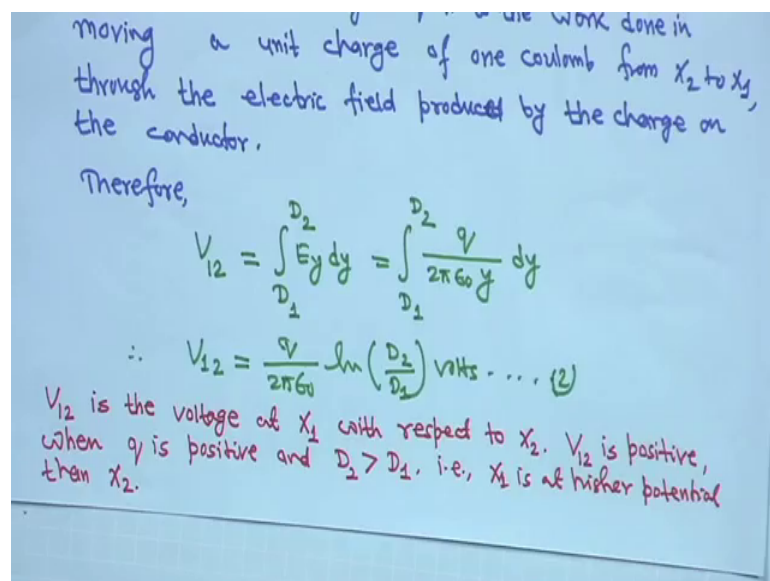 the work done in
moving a unit charge of one coulomb from X₂ to X₁,
through the electric field produced by the charge on
the conductor.
Therefore,
V₁₂ = ∫_{D₁}^{D₂} Ey dy = ∫_{D₁}^{D₂} q/(2πϵ₀y) dy
∴ V₁₂ = q/(2πϵ₀) ln(D₂/D₁) volts .... (2)
V₁₂ is the voltage at X₁ with respect to X₂. V₁₂ is positive,
when q is positive and D₂ > D₁. i.e., X₁ is at higher potential
than X₂.